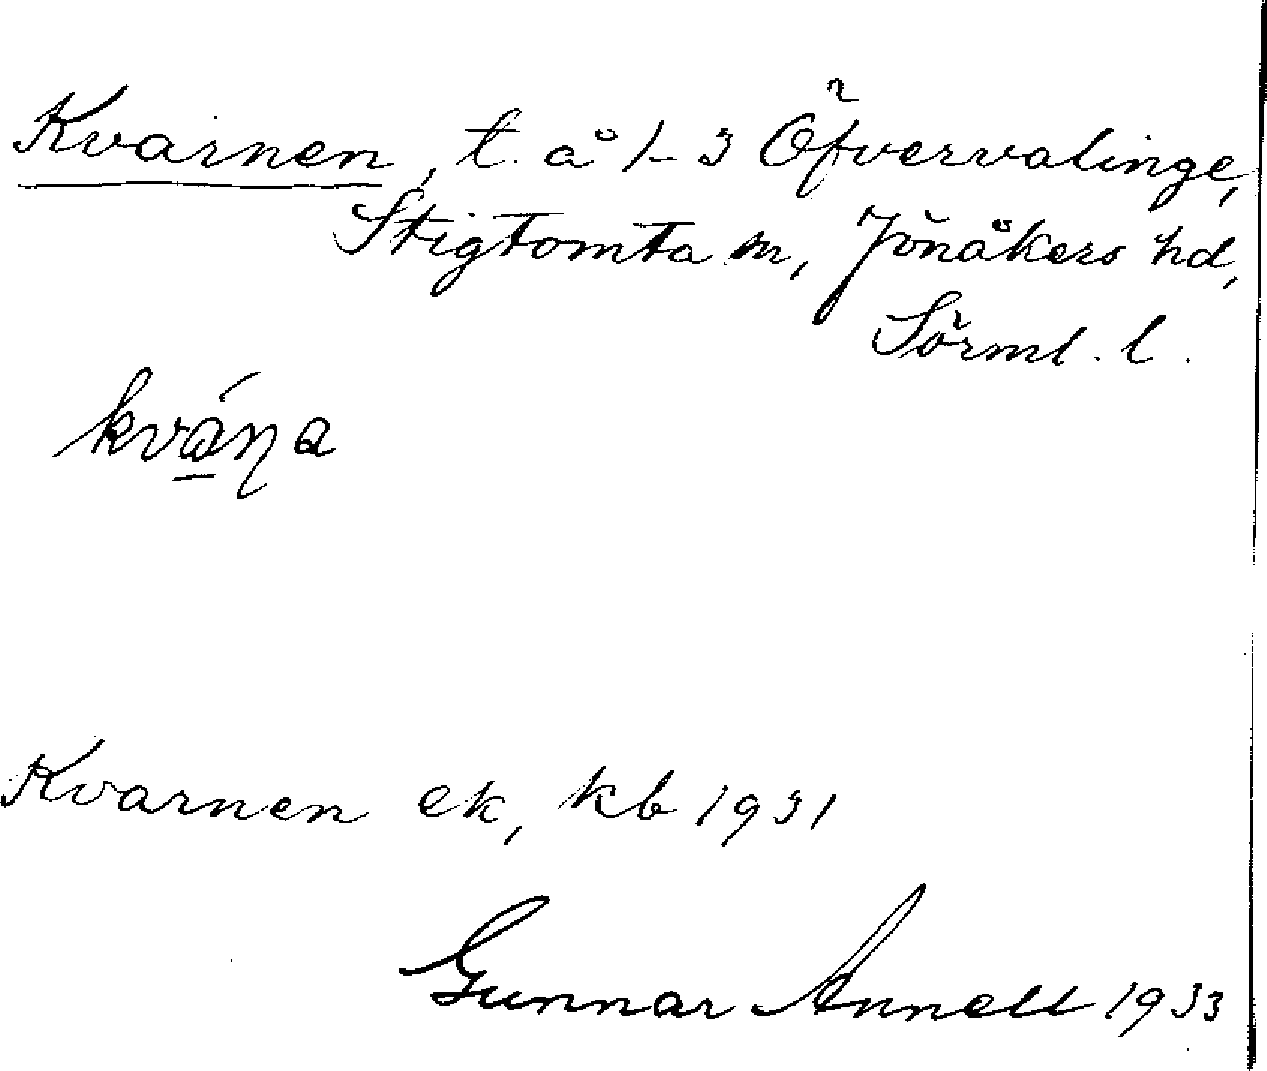 Kvarnen, t. å 1-3 Öfvervalinge,
Stigtomta sn, Jönåkers hd,
Sörml. l.
kvána
Kvarnen ek, kb 1931
Gunnar Annell 1933